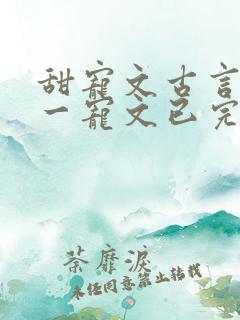 甜寵文古言
一寵文已完
荼靡淚
未经同意禁止转载